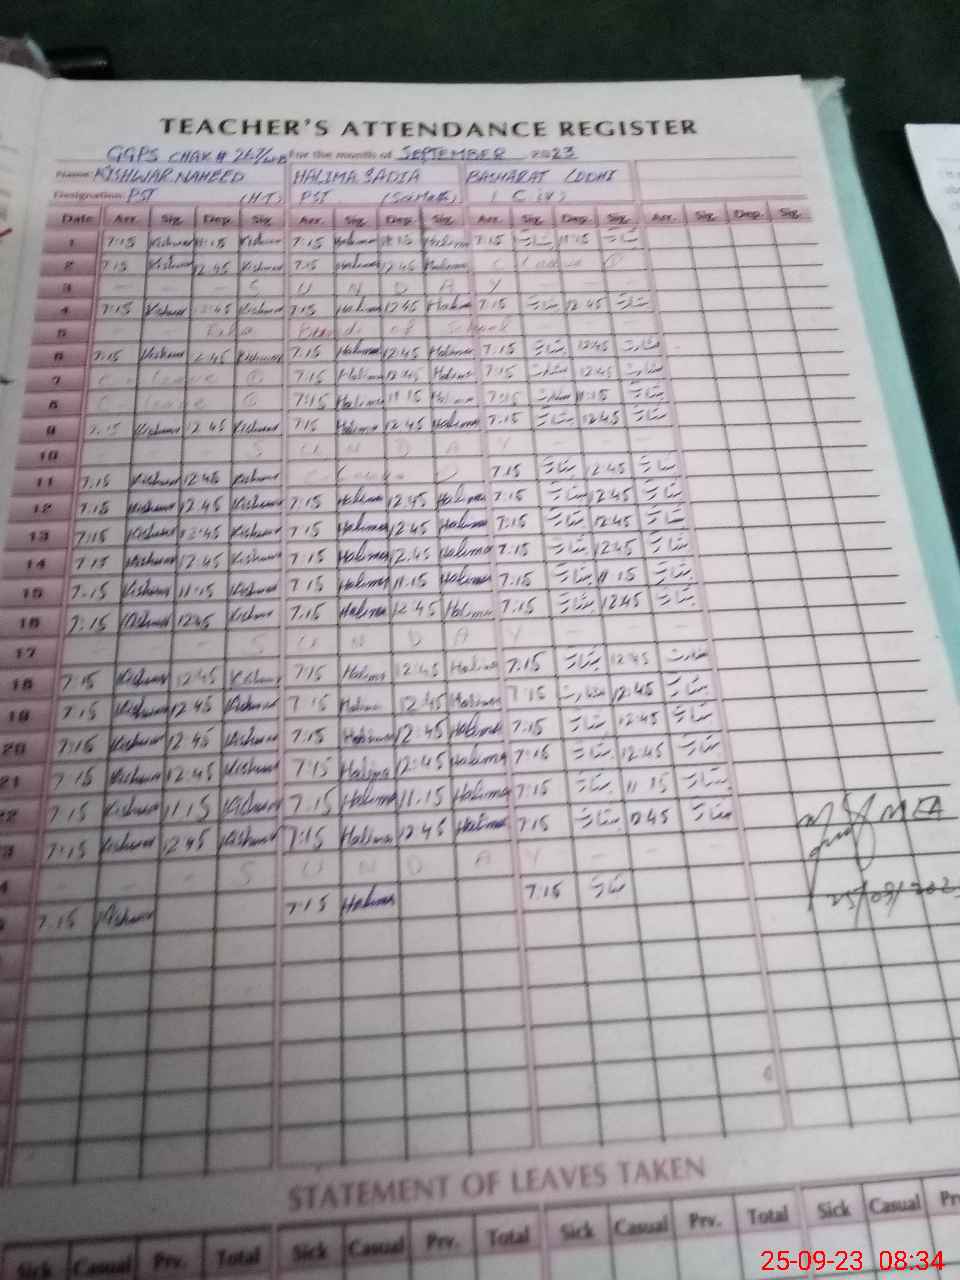 TEACHER'S ATTENDANCE REGISTER
GGPS CHAK # 267/ For the month of SEPTEMBER 2023
Name KISHWAR NAHEED HALIMA SADIA BASHARAT LODHI
Designation PST (H.T) PST (Sci Math) (C iv)
Date Arr. Sig. Dep. Sig. Arr. Sig. Dep. Sig. Arr. Sig. Dep. Sig. Arr. Sig. Dep. Sig.
1 7:15 Kishwar 11:15 Kishwar 7:15 Halima 11:15 Halima 7:15 بشارت 11:15 بشارت
2 7:15 Kishwar 12:45 Kishwar 7:15 Halima 12:45 Halima C Leave
3 - - - S U N D A Y - - -
4 7:15 Kishwar 12:45 Kishwar 7:15 Halima 12:45 Halima 7:15 بشارت 12:45 بشارت
5 of School
6 7:15 Kishwar 12:45 Kishwar 7:15 Halima 12:45 Halima 7:15 بشارت 12:45 بشارت
7 C - leave 7:15 Halima 12:45 Halima 7:15 بشارت 12:45 بشارت
8 C - leave 7:15 Halima 11:15 Halima 7:15 بشارت 11:15 بشارت
9 7:15 Kishwar 12:45 Kishwar 7:15 Halima 12:45 Halima 7:15 بشارت 12:45 بشارت
10 - - - S U N D A Y - - -
11 7:15 Kishwar 12:45 Kishwar C - Leave 7:15 بشارت 12:45 بشارت
12 7:15 Kishwar 12:45 Kishwar 7:15 Halima 12:45 Halima 7:15 بشارت 12:45 بشارت
13 7:15 Kishwar 12:45 Kishwar 7:15 Halima 12:45 Halima 7:15 بشارت 12:45 بشارت
14 7:15 Kishwar 12:45 Kishwar 7:15 Halima 12:45 Halima 7:15 بشارت 12:45 بشارت
15 7:15 Kishwar 11:15 Kishwar 7:15 Halima 11:15 Halima 7:15 بشارت 11:15 بشارت
16 7:15 Kishwar 12:45 Kishwar 7:15 Halima 12:45 Halima 7:15 بشارت 12:45 بشارت
17 - - - S U N D A Y - - -
18 7:15 Kishwar 12:45 Kishwar 7:15 Halima 12:45 Halima 7:15 بشارت 12:45 بشارت
19 7:15 Kishwar 12:45 Kishwar 7:15 Halima 12:45 Halima 7:15 بشارت 12:45 بشارت
20 7:15 Kishwar 12:45 Kishwar 7:15 Halima 12:45 Halima 7:15 بشارت 12:45 بشارت
21 7:15 Kishwar 12:45 Kishwar 7:15 Halima 12:45 Halima 7:15 بشارت 12:45 بشارت
22 7:15 Kishwar 11:15 Kishwar 7:15 Halima 11:15 Halima 7:15 بشارت 11:15 بشارت
3 7:15 Kishwar 12:45 Kishwar 7:15 Halima 12:45 Halima 7:15 بشارت 12:45 بشارت MEA
4 - - - S U N D A Y - - -
7:15 Kishwar 7:15 Halima 7:15 بشارت 25/09/2023
STATEMENT OF LEAVES TAKEN
Sick Casual Prv. Total Sick Casual Prv. Total Sick Casual Prv. Total Sick Casual Pr
25-09-23 08:34